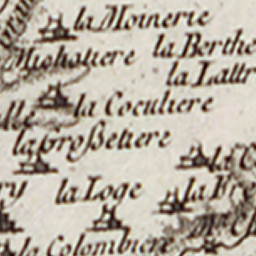 la Moinerie
la Berthe
Michatiere
la Lattr
la Coculiere
lle
la Großetiere
la C
ry
la Loge
la Fre
la Colombiere